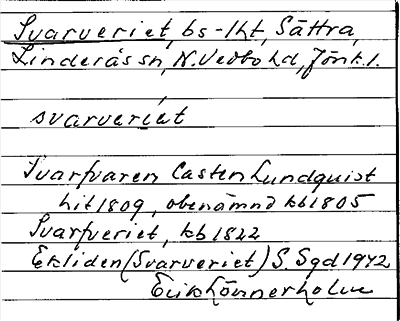 Svarveriet, bs-lht, Sättra,
Linderås sn, N. Vedbo hd, Jönk. l.
svarveríet
Svarfvaren Casten Lundquist
hit 1809, obenämnd kb 1805
Svarfveriet, kb 1822
Ekliden (Svarveriet) S. Sgd 1972
Erik Lönnerholm